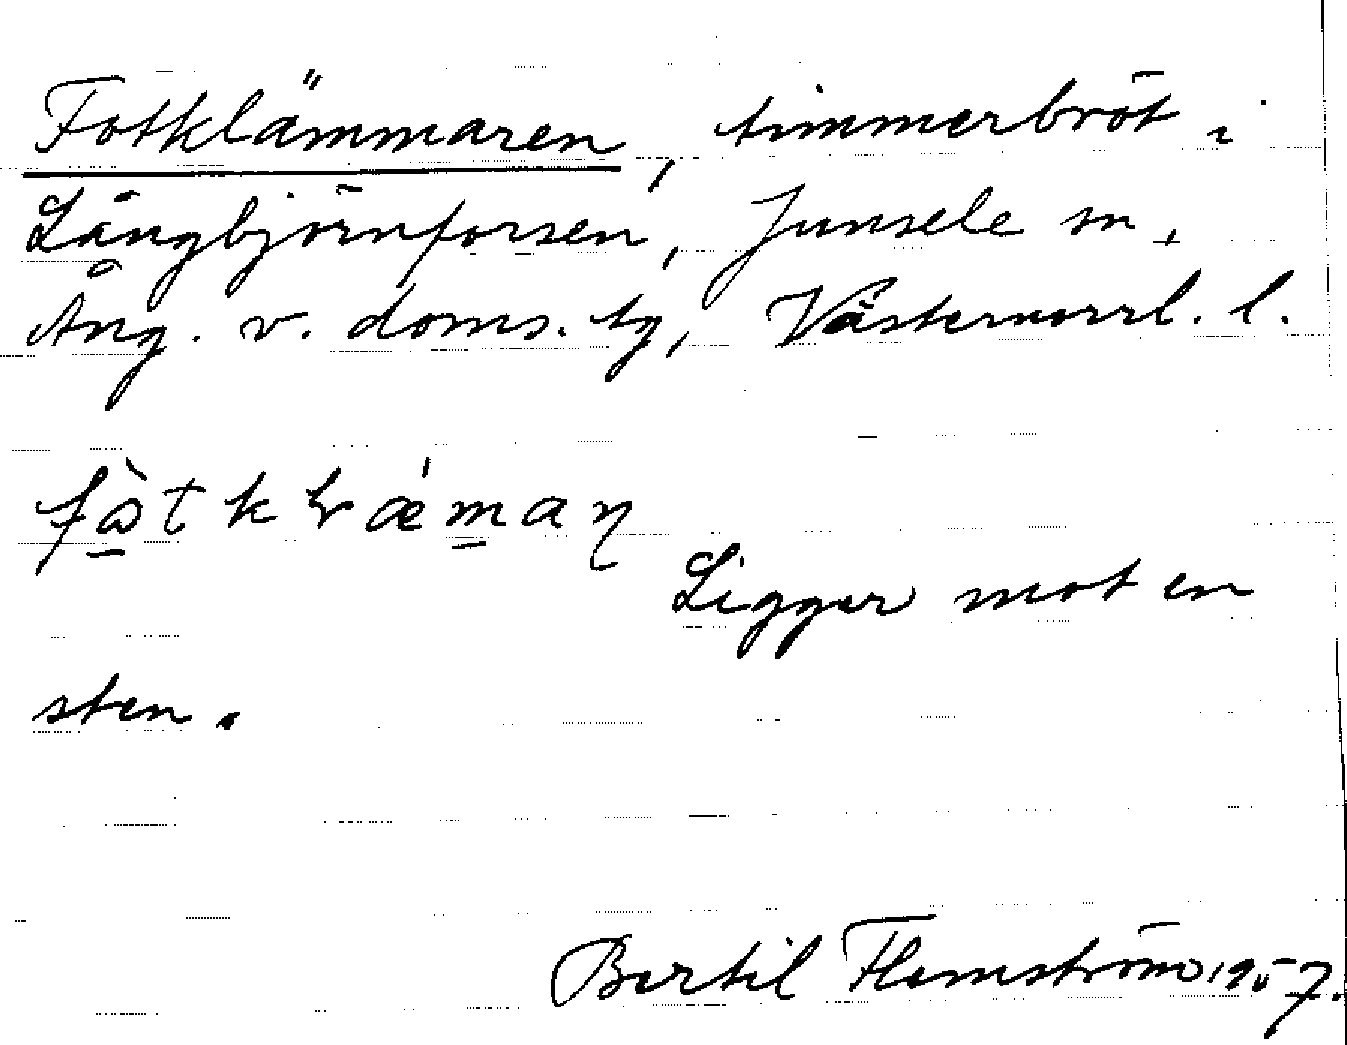 Fotklämmaren, timmerbröt i
Långbjörnforsen, Junsele sn,
Ång. v. doms. tg, Västernorrl. l.
Ligger mot en
sten.
Bertil Flemström 1957.